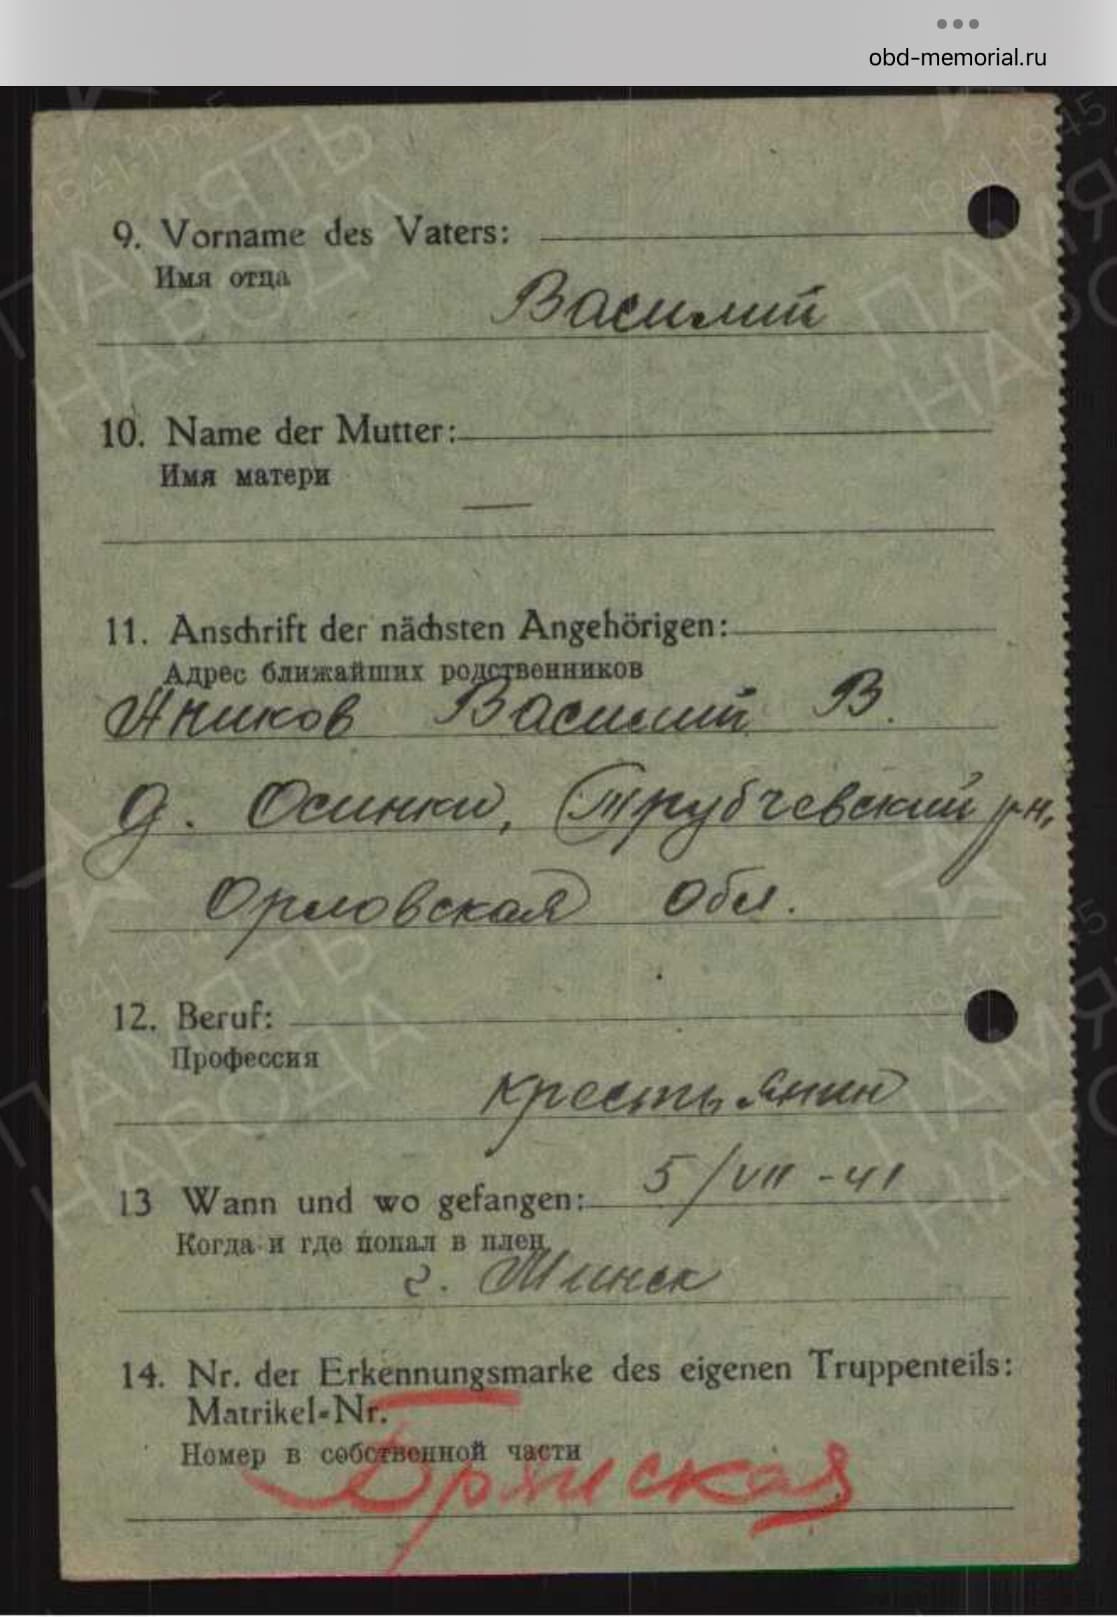 obd-memorial.ru
9. Vorname des Vaters:
Имя отца
Василий
10. Name der Mutter:
Имя матери
—
11. Anschrift der nächsten Angehörigen:
Адрес ближайших родственников
Аников Василий В.
д. Осинки, Трубчевский р-н,
Орловская обл.
12. Beruf:
Профессия
крестьянин
13 Wann und wo gefangen: 5/VII - 41
Когда и где попал в плен
г. Минск
14. Nr. der Erkennungsmarke des eigenen Truppenteils:
Matrikel-Nr.
Номер в собственной части
Брянская
1941-1945
ПАМЯТЬ
НАРОДА